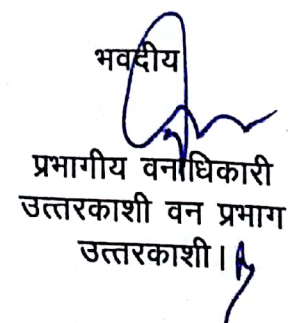 भवदीय
प्रभागीय वनाधिकारी
उत्तरकाशी वन प्रभाग
उत्तरकाशी।